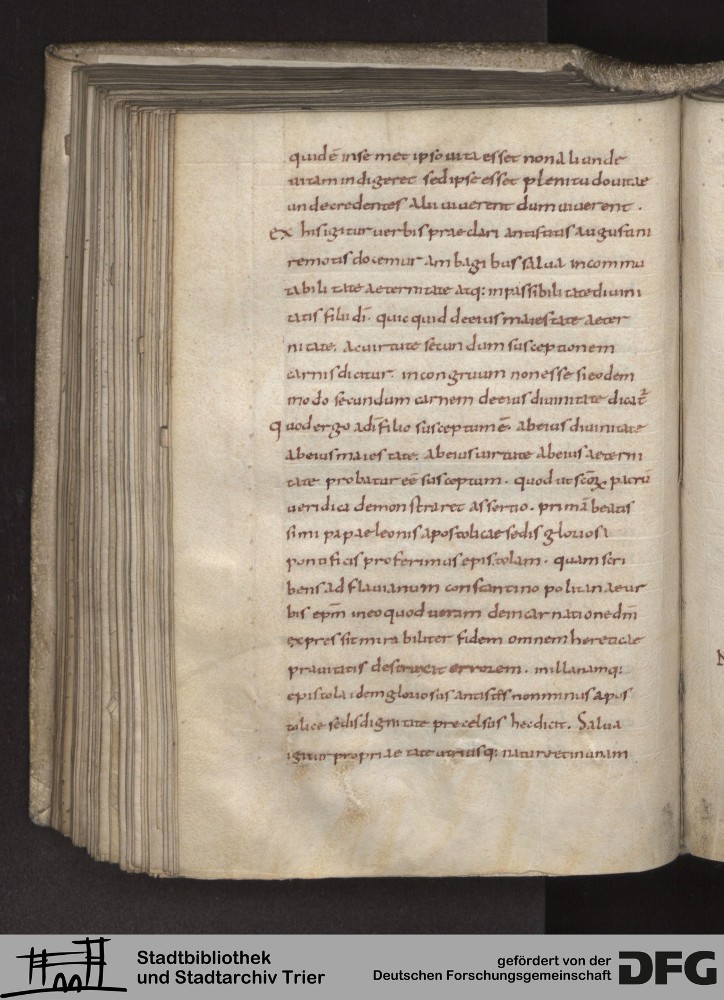 quid ē in se met ipso uita esset non aliunde
uitam indigeret sed ipse esset plenitudo uitae
unde credentes alii uiuerent dum uiuerent .
Ex his igitur uerbis praeclari antistitis augustini
remotis docemur ambagibus salua incommu
tabilitate aeternitate atq: inpassibilitate diuini
tatis filii dī . quicquid de eius maiestate aeter
nitate . ac uirtute secundum susceptionem
carnis dicitur . incongruum non esse si eodem
modo secundum carnem de eius diuinitate dicat̄
quod ergo a dī filio susceptum ē . ab eius diuinitate
ab eius maiestate . ab eius uirtute ab eius aeterni
tate probatur eē susceptum . quod ut scōꝝ patrū
ueridica demonstraret assertio . primā beatis
simi papae leonis apostolicae sedis gloriosi
pontificis proferimus epistolam . quam scri
bens ad flauianum constantinopolitanae ur
bis epm̄ in eo quod ueram de incarnatione dn̄i
expressit mirabiliter fidem omnem hereticae
prauitatis destruxit errorem . in illa namq:
epistola idem gloriosus antistes non minus apos
tolice sedis dignitate precelsus hec dicit . Salua
igitur proprietate utriusq: nature et in unam
N
Stadtbibliothek
und Stadtarchiv Trier
gefördert von der
Deutschen Forschungsgemeinschaft
DFG